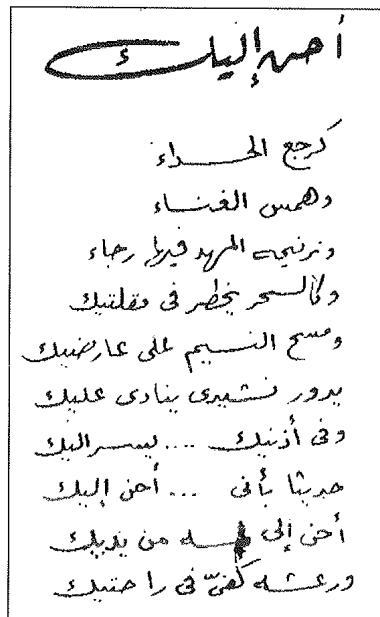 أحن إليك
كرجع الحداء
وهمس الغناء
وترنيمة المهد فيها رجاء
وكالسحر يخطر فى مقلتيك
ومسح النسيم على عارضيك
يدور نشيدى ينادى عليك
وفى أذنيك .... ليسر اليك
حديثا بأنى ... أحن إليك
أحن إلى لمسة من يديك
ورعشة كفىّ فى راحتيك